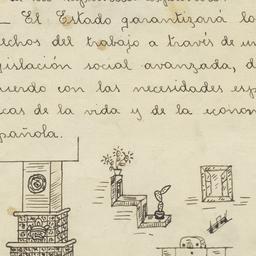 _ El Estado garantizará lo
echos del trabajo a través de un
gislación social avanzada, d
uerdo con las necesidades esp
cas de la vida y de la econom
pañola.